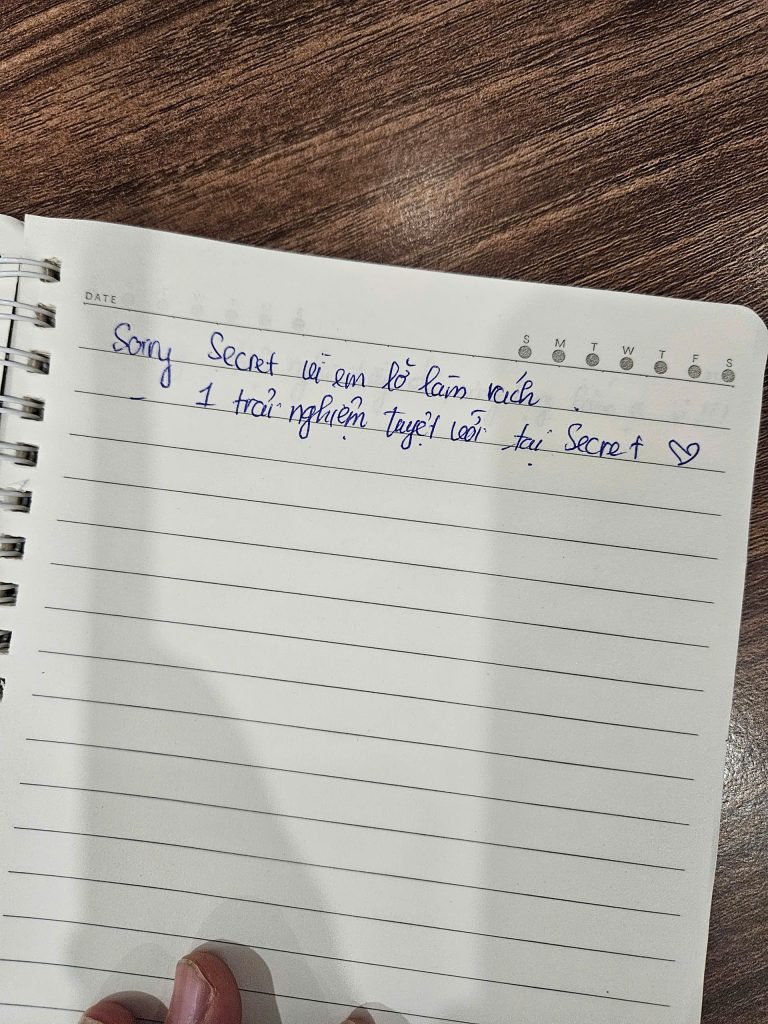 DATE
S M T W T F S
Sorry Secret vì em lỡ làm rách.
- 1 trải nghiệm tuyệt vời tại Secret ♡